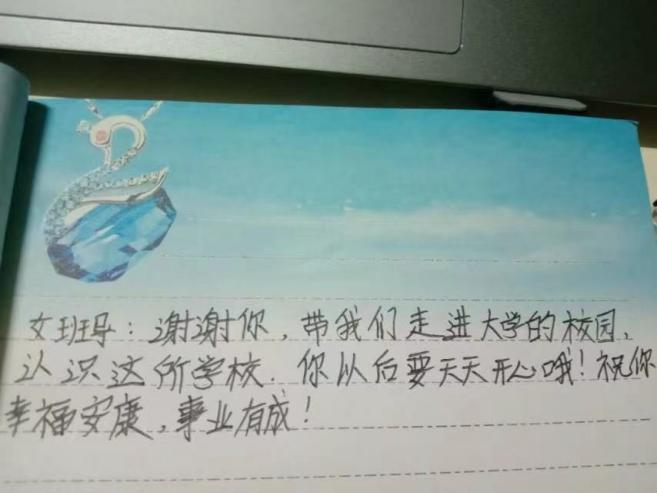 女班导：谢谢你，带我们走进大学的校园、
认识这所学校．你以后要天天开心哦！祝你
幸福安康，事业有成！